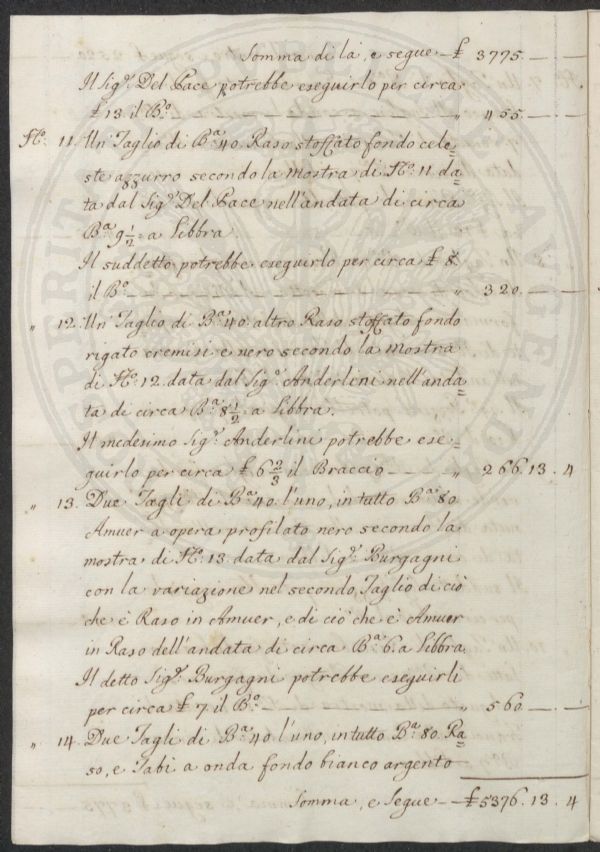 Somma di là, e segue — £ 3775. — —
Il Sig.r Del Pace potrebbe eseguirlo per circa
£ 13. il B.o — — — — — — — — „ 455. — —
N.o 11. Un' Taglio di B.a 40. Raso stoffato fondo cele=
ste azzurro secondo la mostra di N.o 11. da=
ta dal Sig.r Del Pace nell'andata di circa
B.a 9 1/2 a Libbra.
Il suddetto potrebbe eseguirlo per circa £ 8.
il B.o — — — — — — — — — — „ 320. — —
„ 12. Un' Taglio di B.a 40. altro Raso stoffato fondo
rigato cremisi e nero secondo la mostra
di N.o 12. data dal Sig.r Anderlini nell'anda=
ta di circa B.a 8 1/2 a Libbra.
Il medesimo Sig.r Anderlini potrebbe ese=
guirlo per circa £ 6 2/3 il Braccio — — — „ 266. 13. 4
„ 13. Due Tagli di B.a 40. l'uno, in tutto B.a 80.
Amuer a opera profilato nero secondo la
mostra di N.o 13. data dal Sig.r Burgagni
con la variazione nel secondo Taglio di ciò
che è Raso in Amuer, e di ciò che è Amuer
in Raso dell'andata di circa B.a 6. a Libbra.
Il detto Sig.r Burgagni potrebbe eseguirli
per circa £ 7. il B.o — — — — — — „ 560. — —
„ 14. Due Tagli di B.a 40. l'uno, in tutto B.a 80. Ra=
so, e Tabì a onda fondo bianco argento
Somma, e Segue — £ 5376. 13. 4